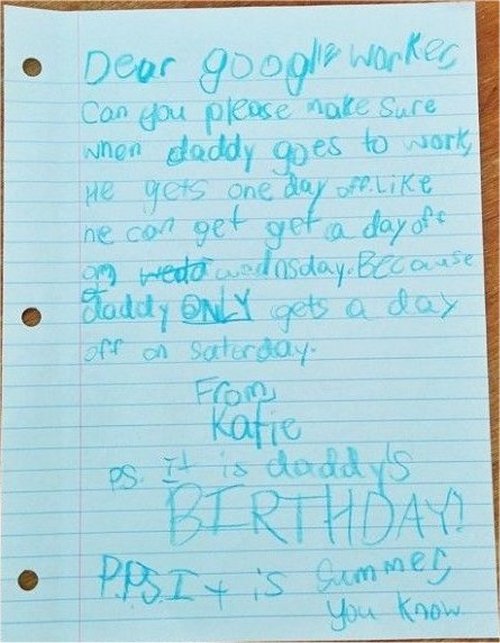 Dear google worker,
Can you please make sure
when daddy goes to work,
He gets one day off. Like
he can get get a day off
on wedd wednsday. BECause
daddy ONLY gets a day
off on saturday.
From,
Katie
PS. It is daddy's
BIRTHDAY!
P.P.S. It is summer,
you know.